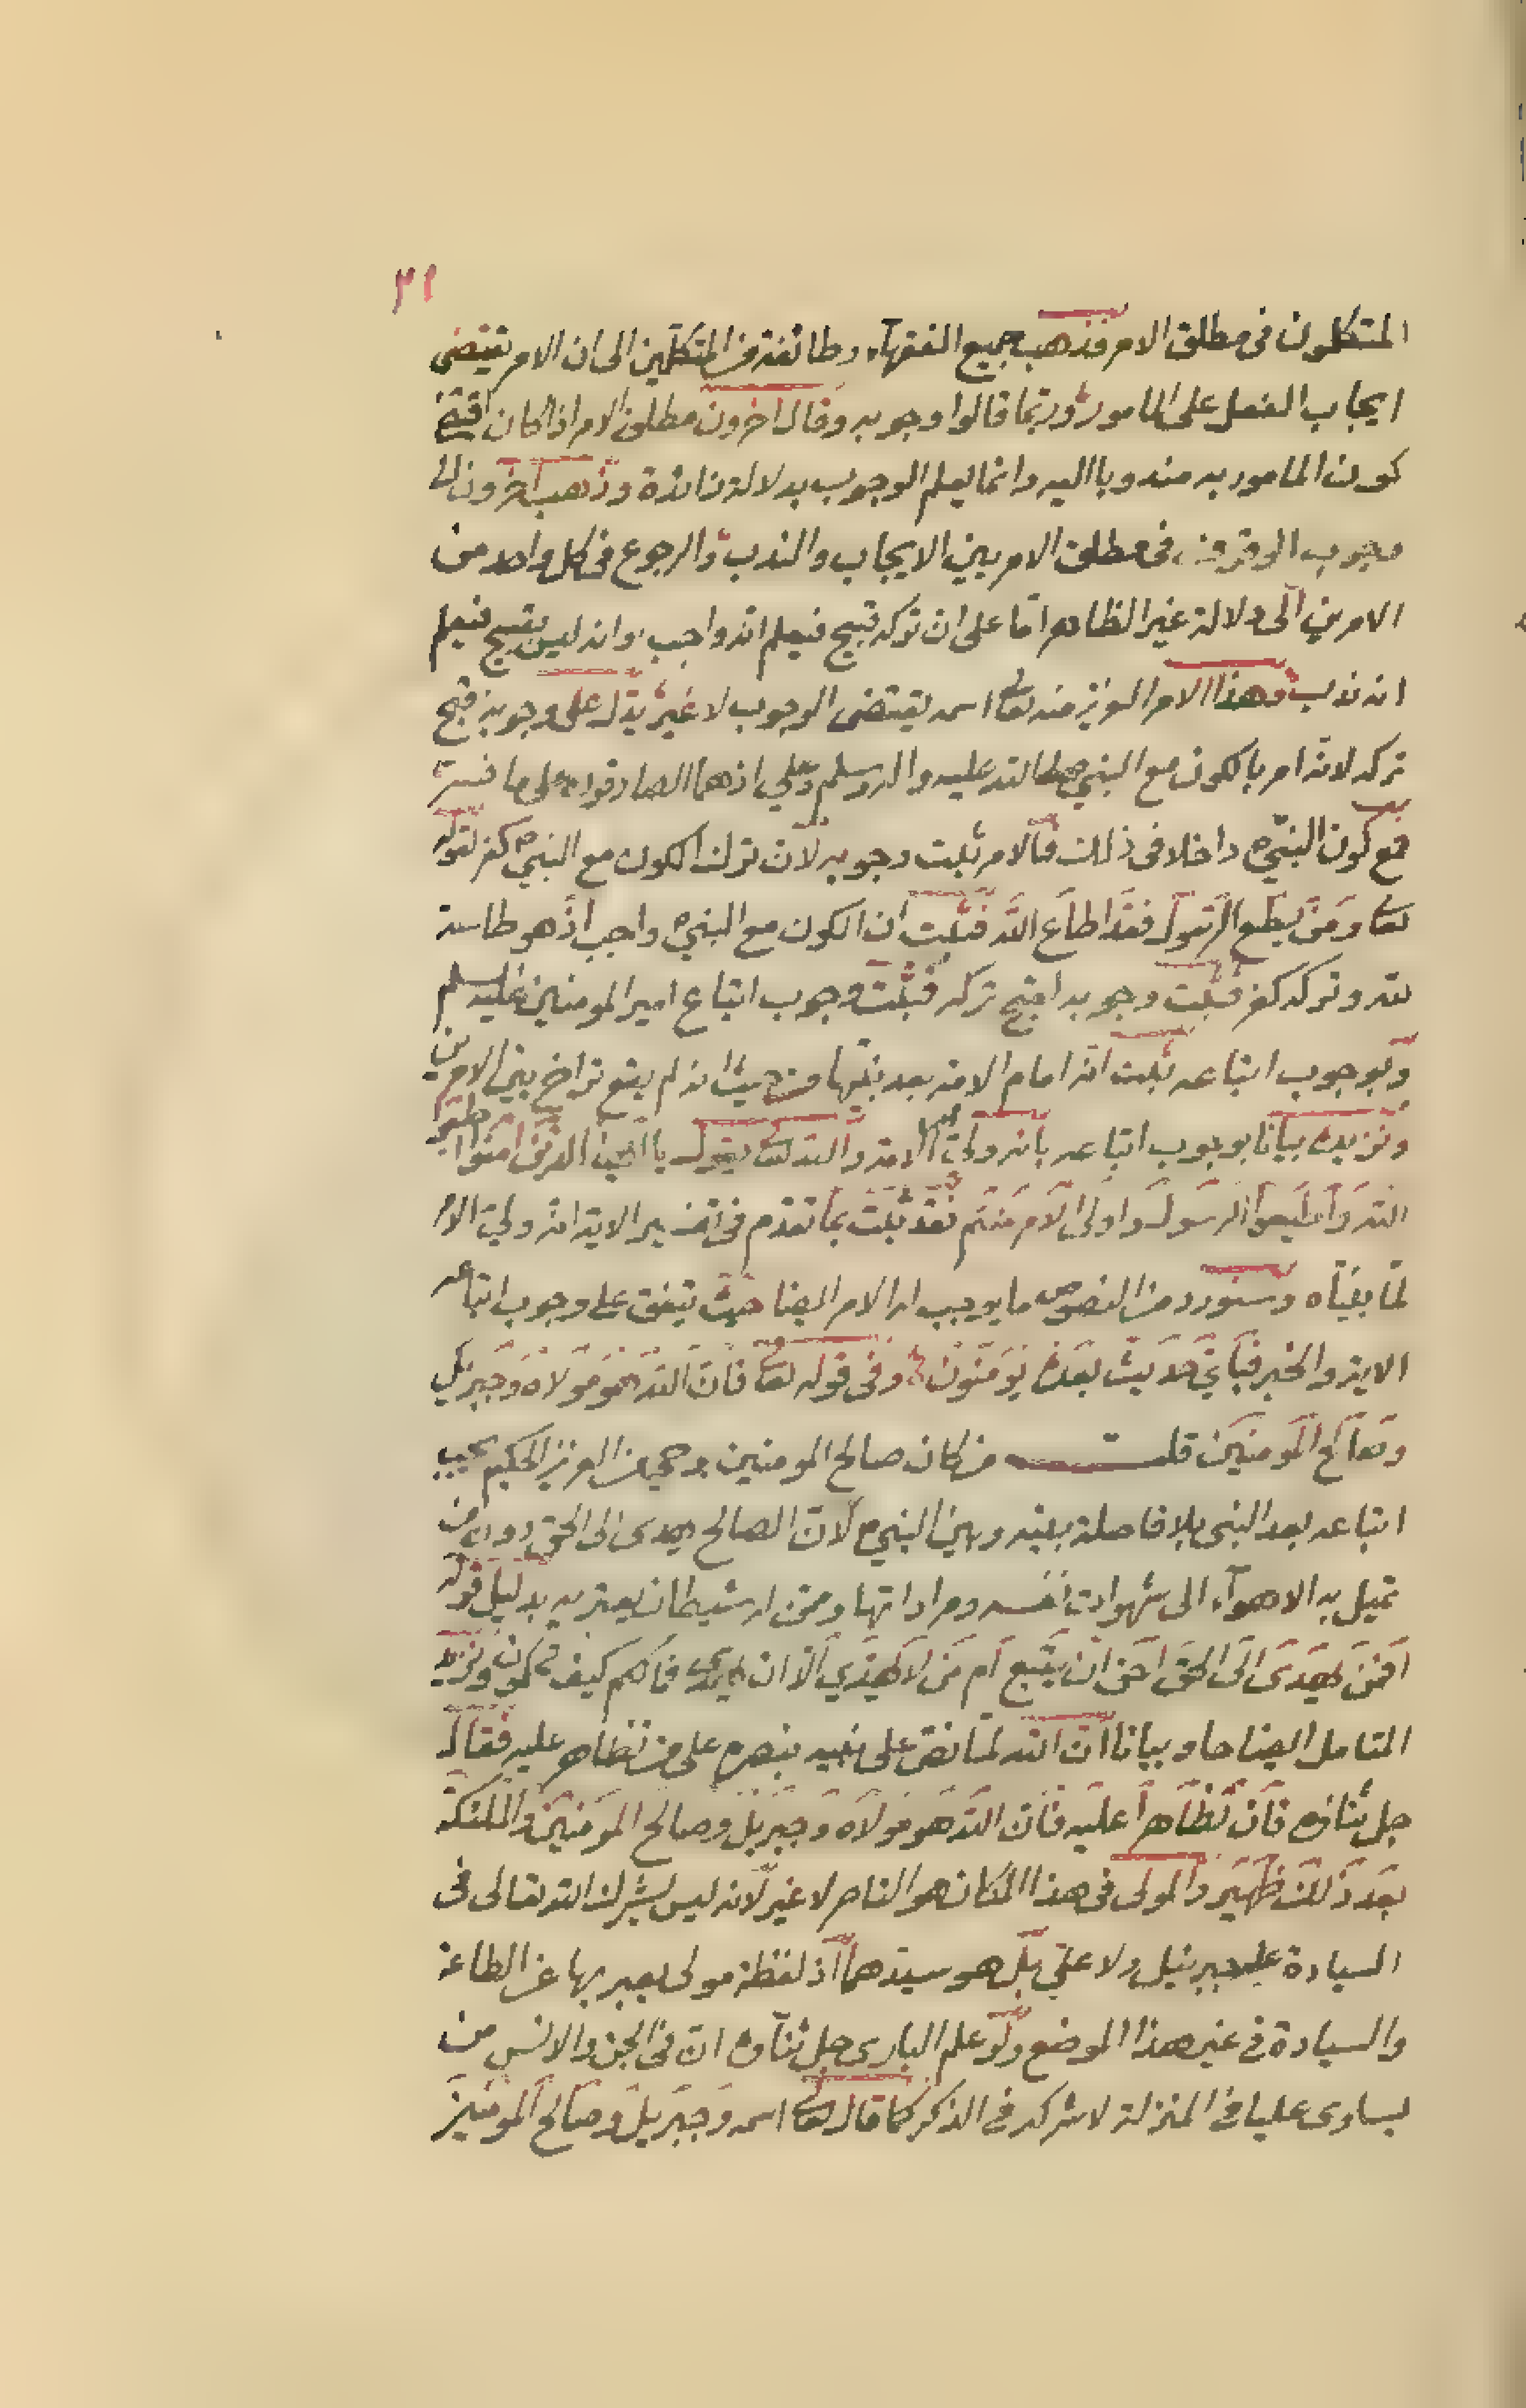 ٣١
المتكلمون فى مطلق الامر فذهب جميع الفقهاء وطائفة من المتكلمين الى ان الامر يقتضى
ايجاب الفعل على المامور وربما قالوا وجوبه وقال اخرون مطلق الامر اذا كان اقتضى
كون المامور به مندوبا اليه وانما يعلم الوجوب بدلالة زائدة وذهب اخرون الى
وجوب الوقوف فى مطلق الامر بين الايجاب والندب والرجوع فى كل واحد من
الامرين الى دلالة غير الظاهر اما على ان تركه قبيح فيعلم انه واجب او انه ليس بقبيح فيعلم
انه ندب وهذا الامر العزيز منه تعالى اسمه يقتضى الوجوب لا غير يدل على وجوبه قبح
تركه لانه امر بالكون مع النبي صلى الله عليه واله وسلم وعلي اذهما الصادقون على ما فسرت
مع كون النبي داخلا فى ذلك فالامر ثبت وجوبه لان ترك الكون مع النبي كفر لقوله
تعالى ومن يطع الرسول فقد اطاع الله فثبت ان الكون مع النبي واجب اذ هو طاعة
لله وتركه كفر فثبت وجوبه لقبح تركه فثبت وجوب اتباع امير المومنين عليه السلم
وبوجوب اتباعه ثبت انه امام الامة بعد نبيها من حيث انه لم يقع تراخ بين الامرين
ونزيده بيانا بوجوب اتباعه بانه ولي امر الامة والله تعالى يقول يا ايها الذين امنوا اطيعوا
الله واطيعوا الرسول واولى الامر منكم فقد ثبت بما تقدم فى تفسير الاية انه ولي الامر
لما بيناه وسنورد من النصوص ما يوجب له الامر ايضا حيث يتفق على وجوب اتباعه
الاية والخبر فباي حديث بعده يؤمنون وفى قوله تعالى فان الله هو مولاه وجبريل
وصالح المومنين قلت من كان صالح المومنين بوحي من العزيز الحكيم يجب
اتباعه بعد النبي بلا فاصلة بينه وبين النبي لان الصالح يهدى الى الحق دون من
تميل به الاهوآء الى شهوات نفسه ومراداتها ومن له شيطان يعتريه بدليل قوله
افمن يهدى الى الحق احق ان يتبع ام من لا يهدي الا ان يهدى فما لكم كيف تحكمون ونزيد
المتامل ايضاحا وبيانا ان الله لما نص على نبيه بنصره على من تظاهر عليه فقال
جل ثناؤه فان تظاهرا عليه فان الله هو مولاه وجبريل وصالح المومنين والملئكة
بعد ذلك ظهير والمولى فى هذا المكان هو الناصر لا غير لانه ليس يشرك الله تعالى فى
السيادة على جبرئيل ولا علي بل هو سيدهما اذ لفظة مولى يعبر بها عن الطاعة
والسيادة فى غير هذا الموضع ولو علم البارى جل ثناؤه ان فى الجن والانس من
يساوى عليا فى المنزلة لاشركه فى الذكر كما قال تعالى اسمه وجبريل وصالح المومنين